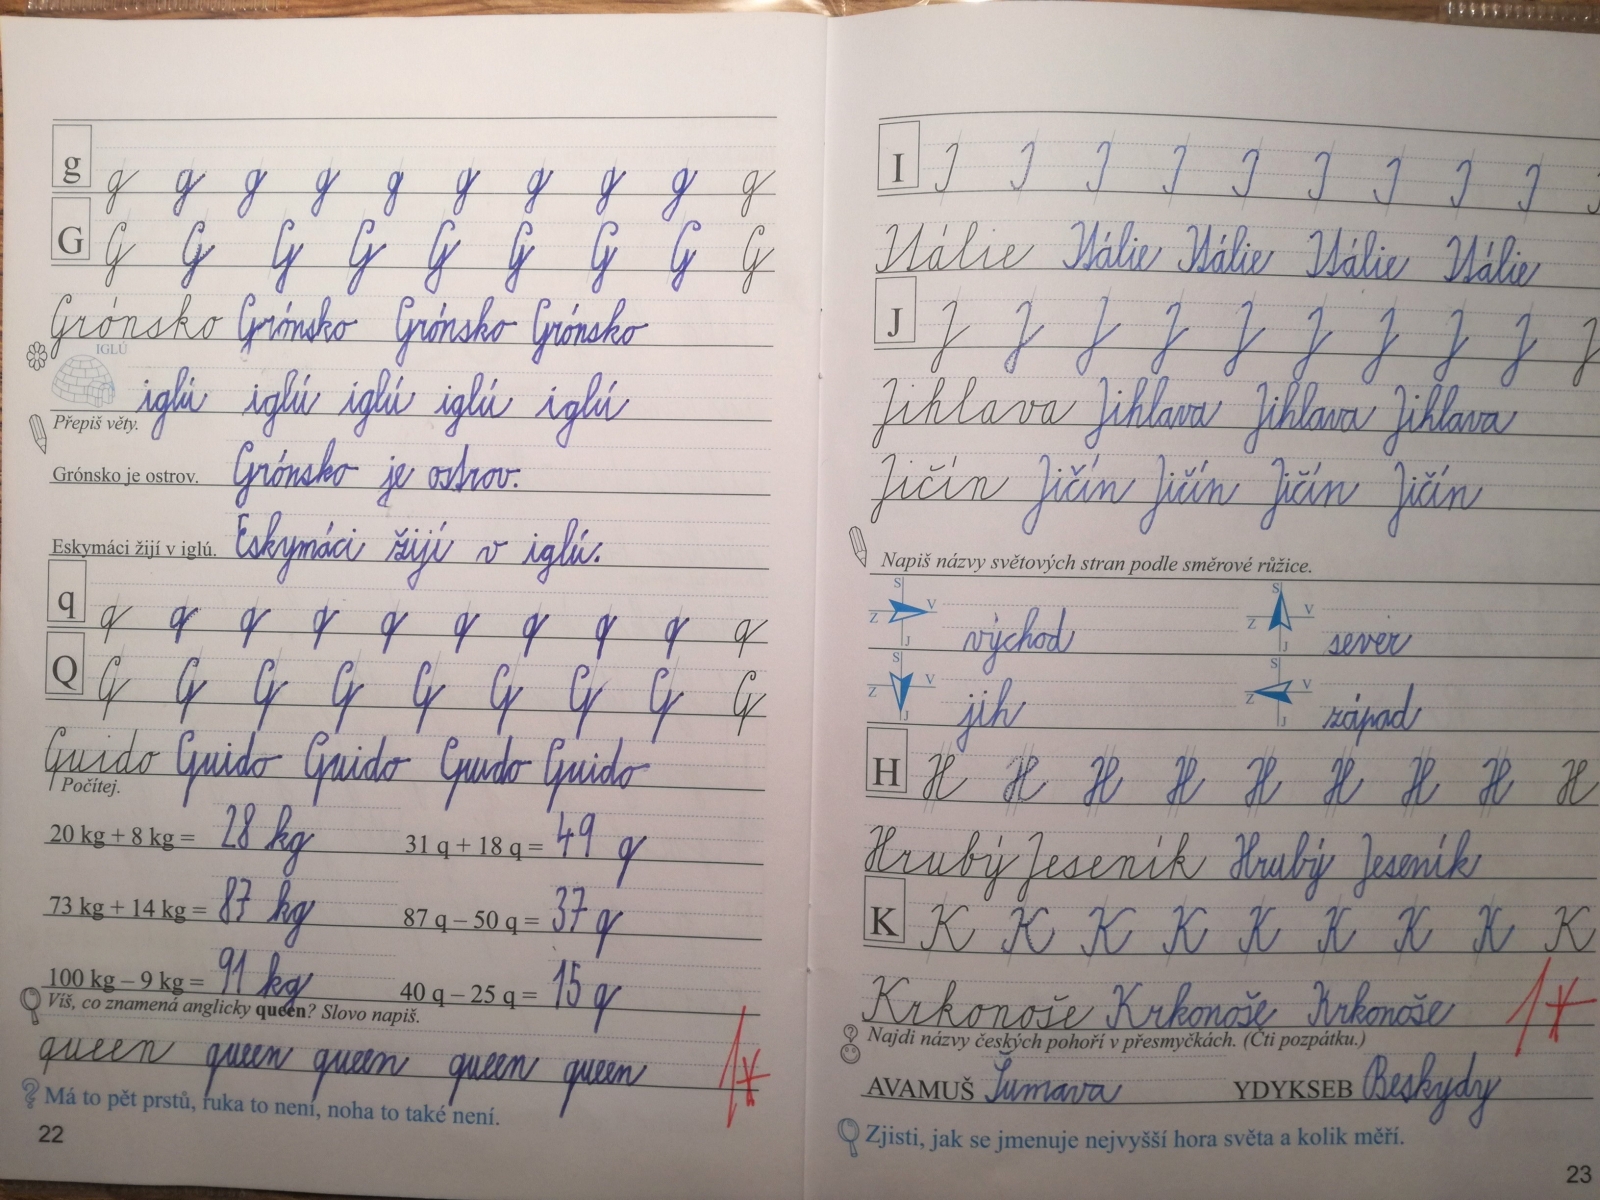 g g g g g g g g g g g
G G G G G G G G G G G
Grónsko Grónsko Grónsko Grónsko
IGLÚ
iglú iglú iglú iglú iglú
Přepiš věty.
Grónsko je ostrov. Grónsko je ostrov.
Eskymáci žijí v iglú. Eskymáci žijí v iglú.
q q q q q q q q q q q
Q Q Q Q Q Q Q Q Q Q
Guido Guido Guido Gudo Guido
Počítej.
20 kg + 8 kg = 28 kg 31 q + 18 q = 49 q
73 kg + 14 kg = 87 kg 87 q – 50 q = 37 q
100 kg – 9 kg = 91 kg 40 q – 25 q = 15 q
Víš, co znamená anglicky queen? Slovo napiš.
queen queen queen queen queen
1*
Má to pět prstů, ruka to není, noha to také není.
22
I I I I I I I I I I I
Itálie Itálie Itálie Itálie Itálie
J J J J J J J J J J J
Jihlava Jihlava Jihlava Jihlava
Jičín Jičín Jičín Jičín Jičín
Napiš názvy světových stran podle směrové růžice.
S V Z J východ S V Z J sever
S V Z J jih S V Z J západ
H H H H H H H H H H
Hrubý Jeseník Hrubý Jeseník
K K K K K K K K K K
Krkonoše Krkonoše Krkonoše
1*
Najdi názvy českých pohoří v přesmyčkách. (Čti pozpátku.)
AVAMUŠ Šumava YDYKSEB Beskydy
Zjisti, jak se jmenuje nejvyšší hora světa a kolik měří.
23